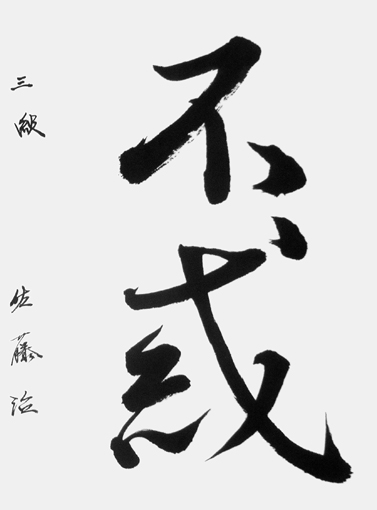 不惑
三級 佐藤治